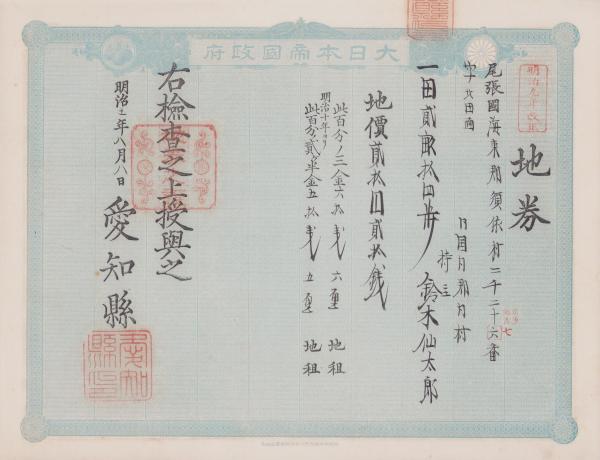 大日本帝國政府
明治九年改正
地券
尾張國海東郡須依村二千二十六番
字
同國同郡同村
持主 鈴木仙太郎
一田貳畝拾四歩
地價貳拾圓貳拾錢
此百分ノ三金六拾錢六厘 地租
明治十年ヨリ
此百分ノ貳ヶ半金五拾錢五厘 地租
右檢查之上授與之
明治十二年八月八日
愛知縣
愛知縣印